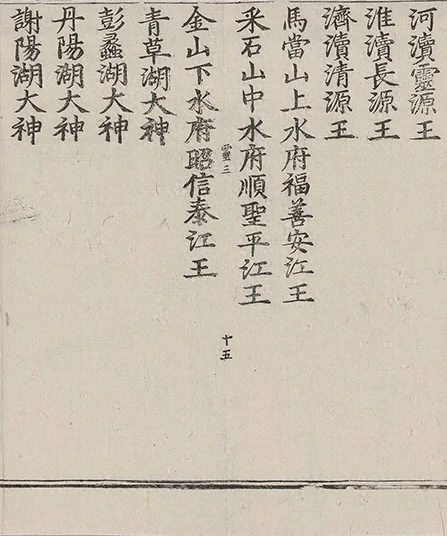 河瀆靈源王
淮瀆長源王
濟瀆清源王
馬當山上水府福善安江王
采石山中水府順聖平江王
靈三
十五
金山下水府昭信泰江王
青草湖大神
彭蠡湖大神
丹陽湖大神
謝陽湖大神